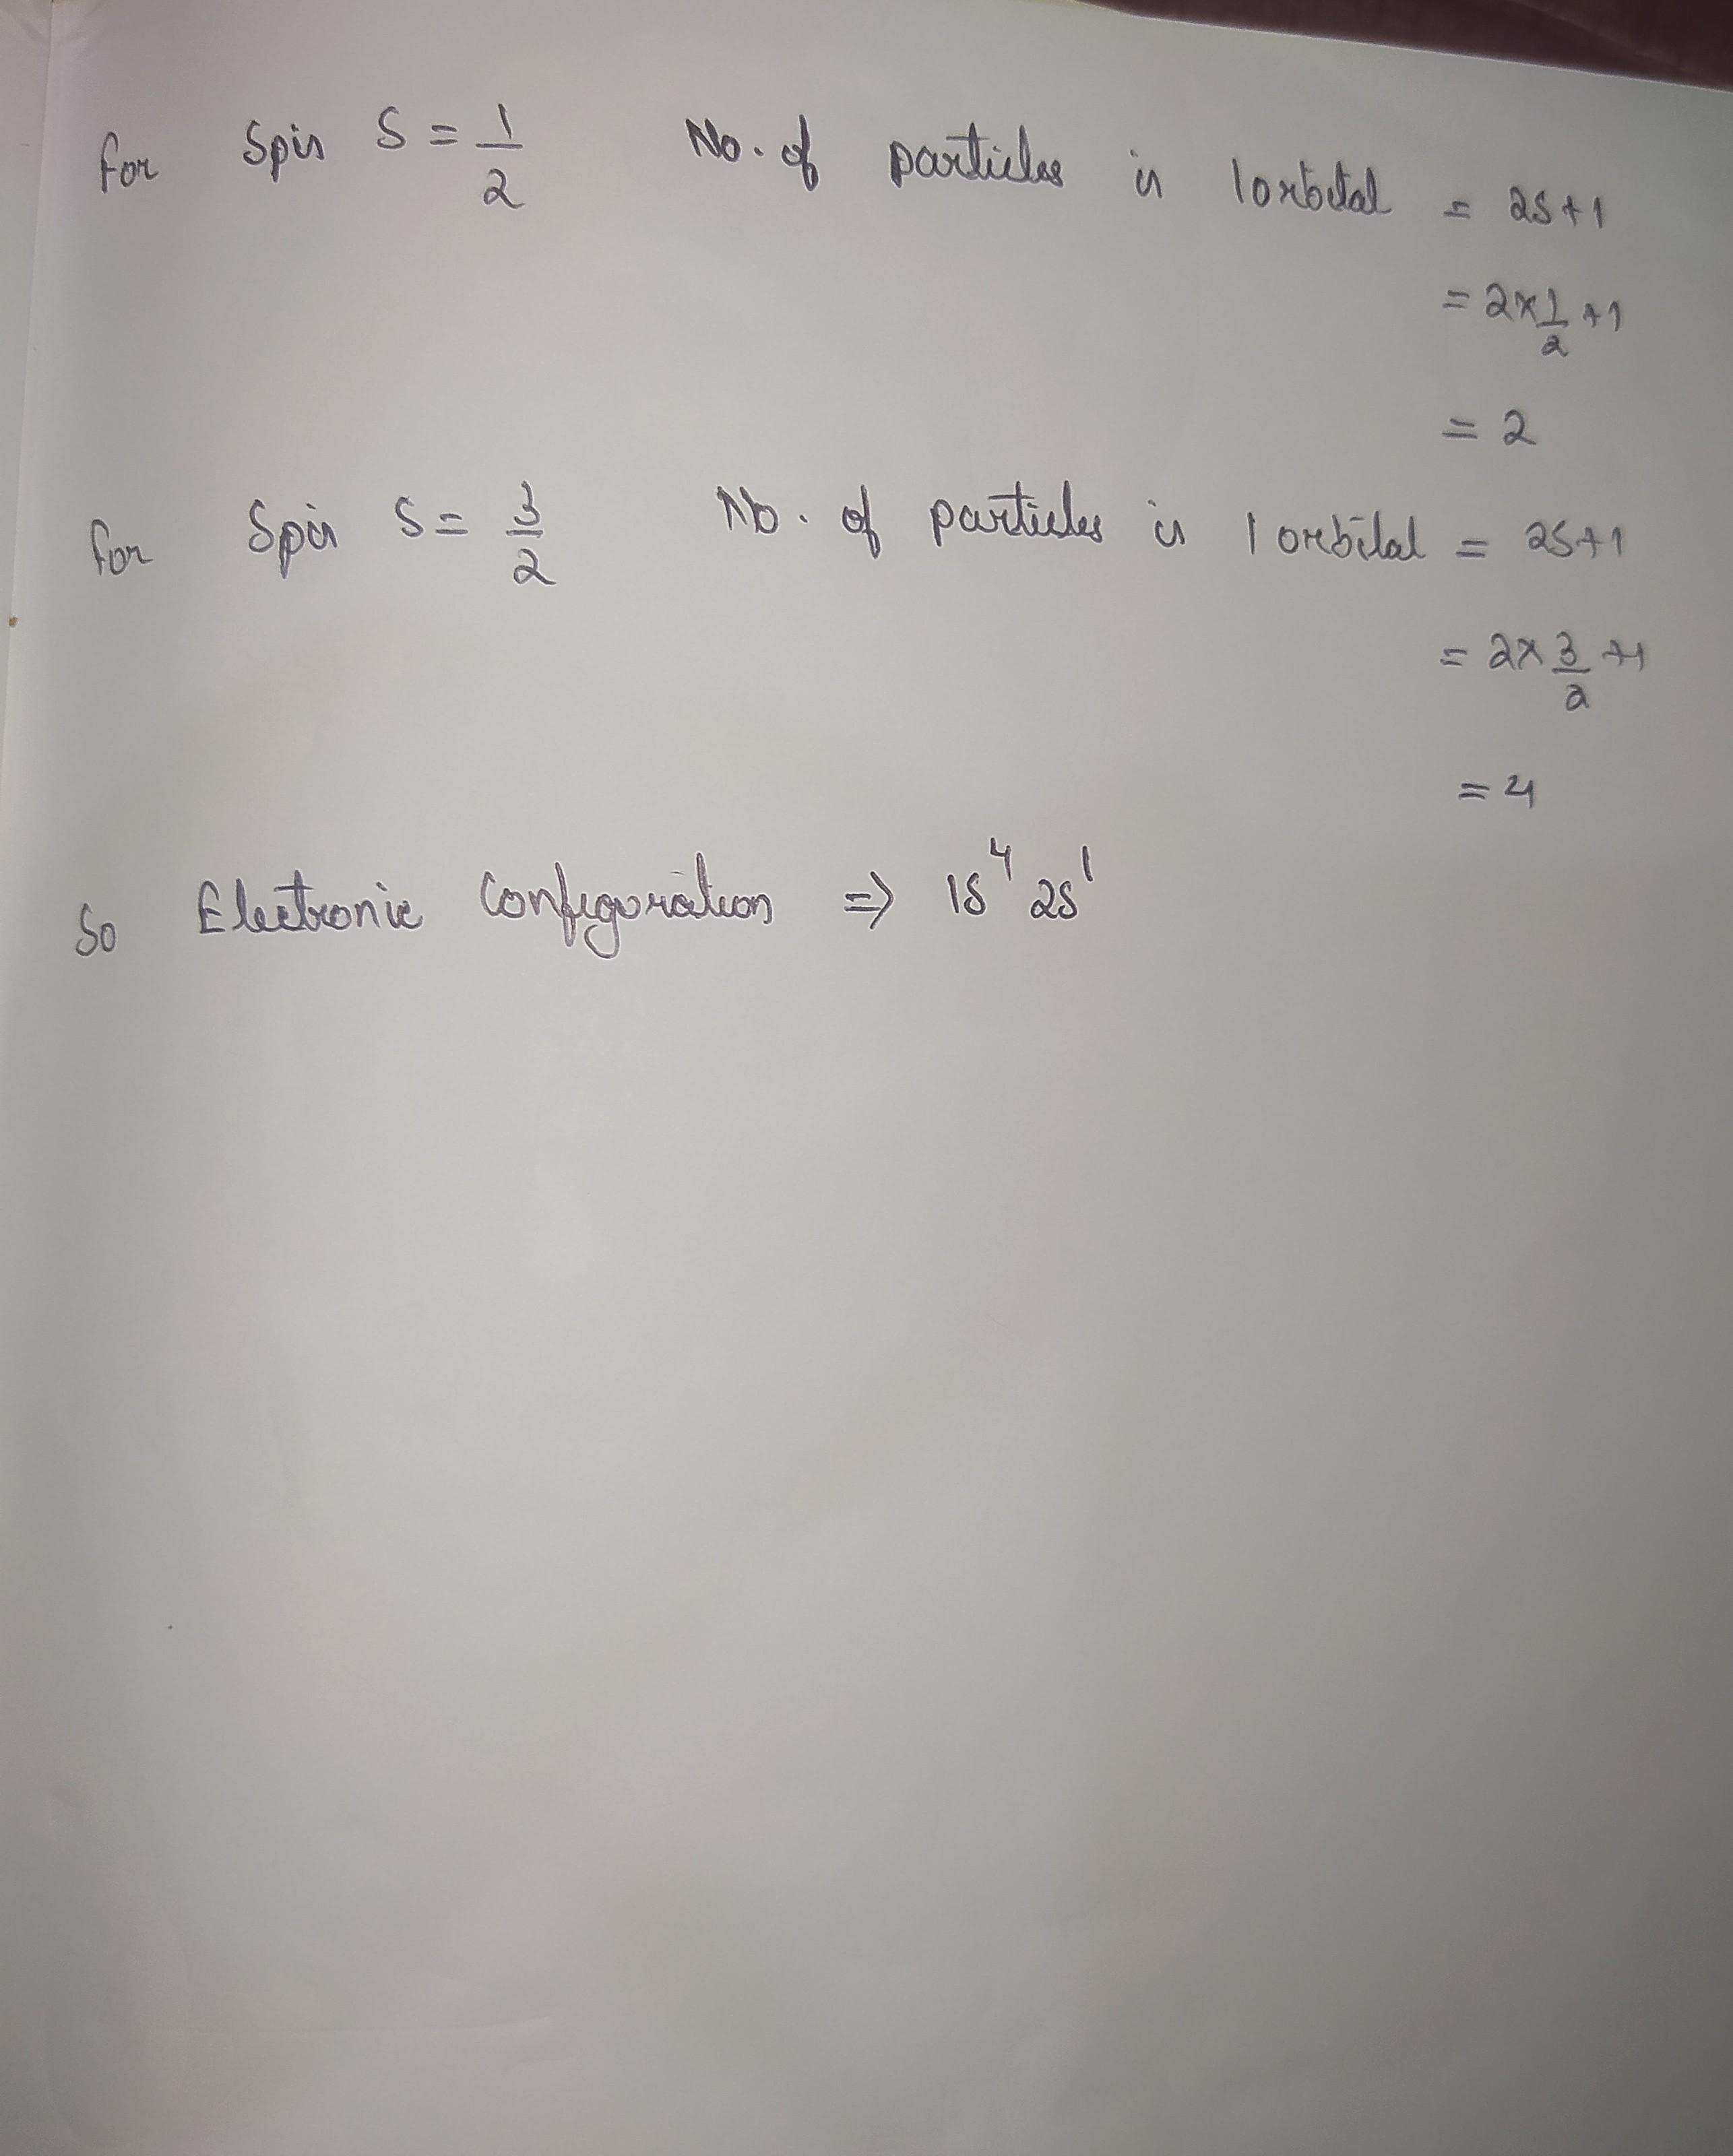 for Spin S = 1/2 No. of particles in 1 orbital = 2S+1
= 2×1/2 +1
= 2
for Spin S = 3/2 No. of particles in 1 orbital = 2S+1
= 2×3/2 +1
= 4
So Electronic Configuration ⇒ 1S⁴ 2S¹